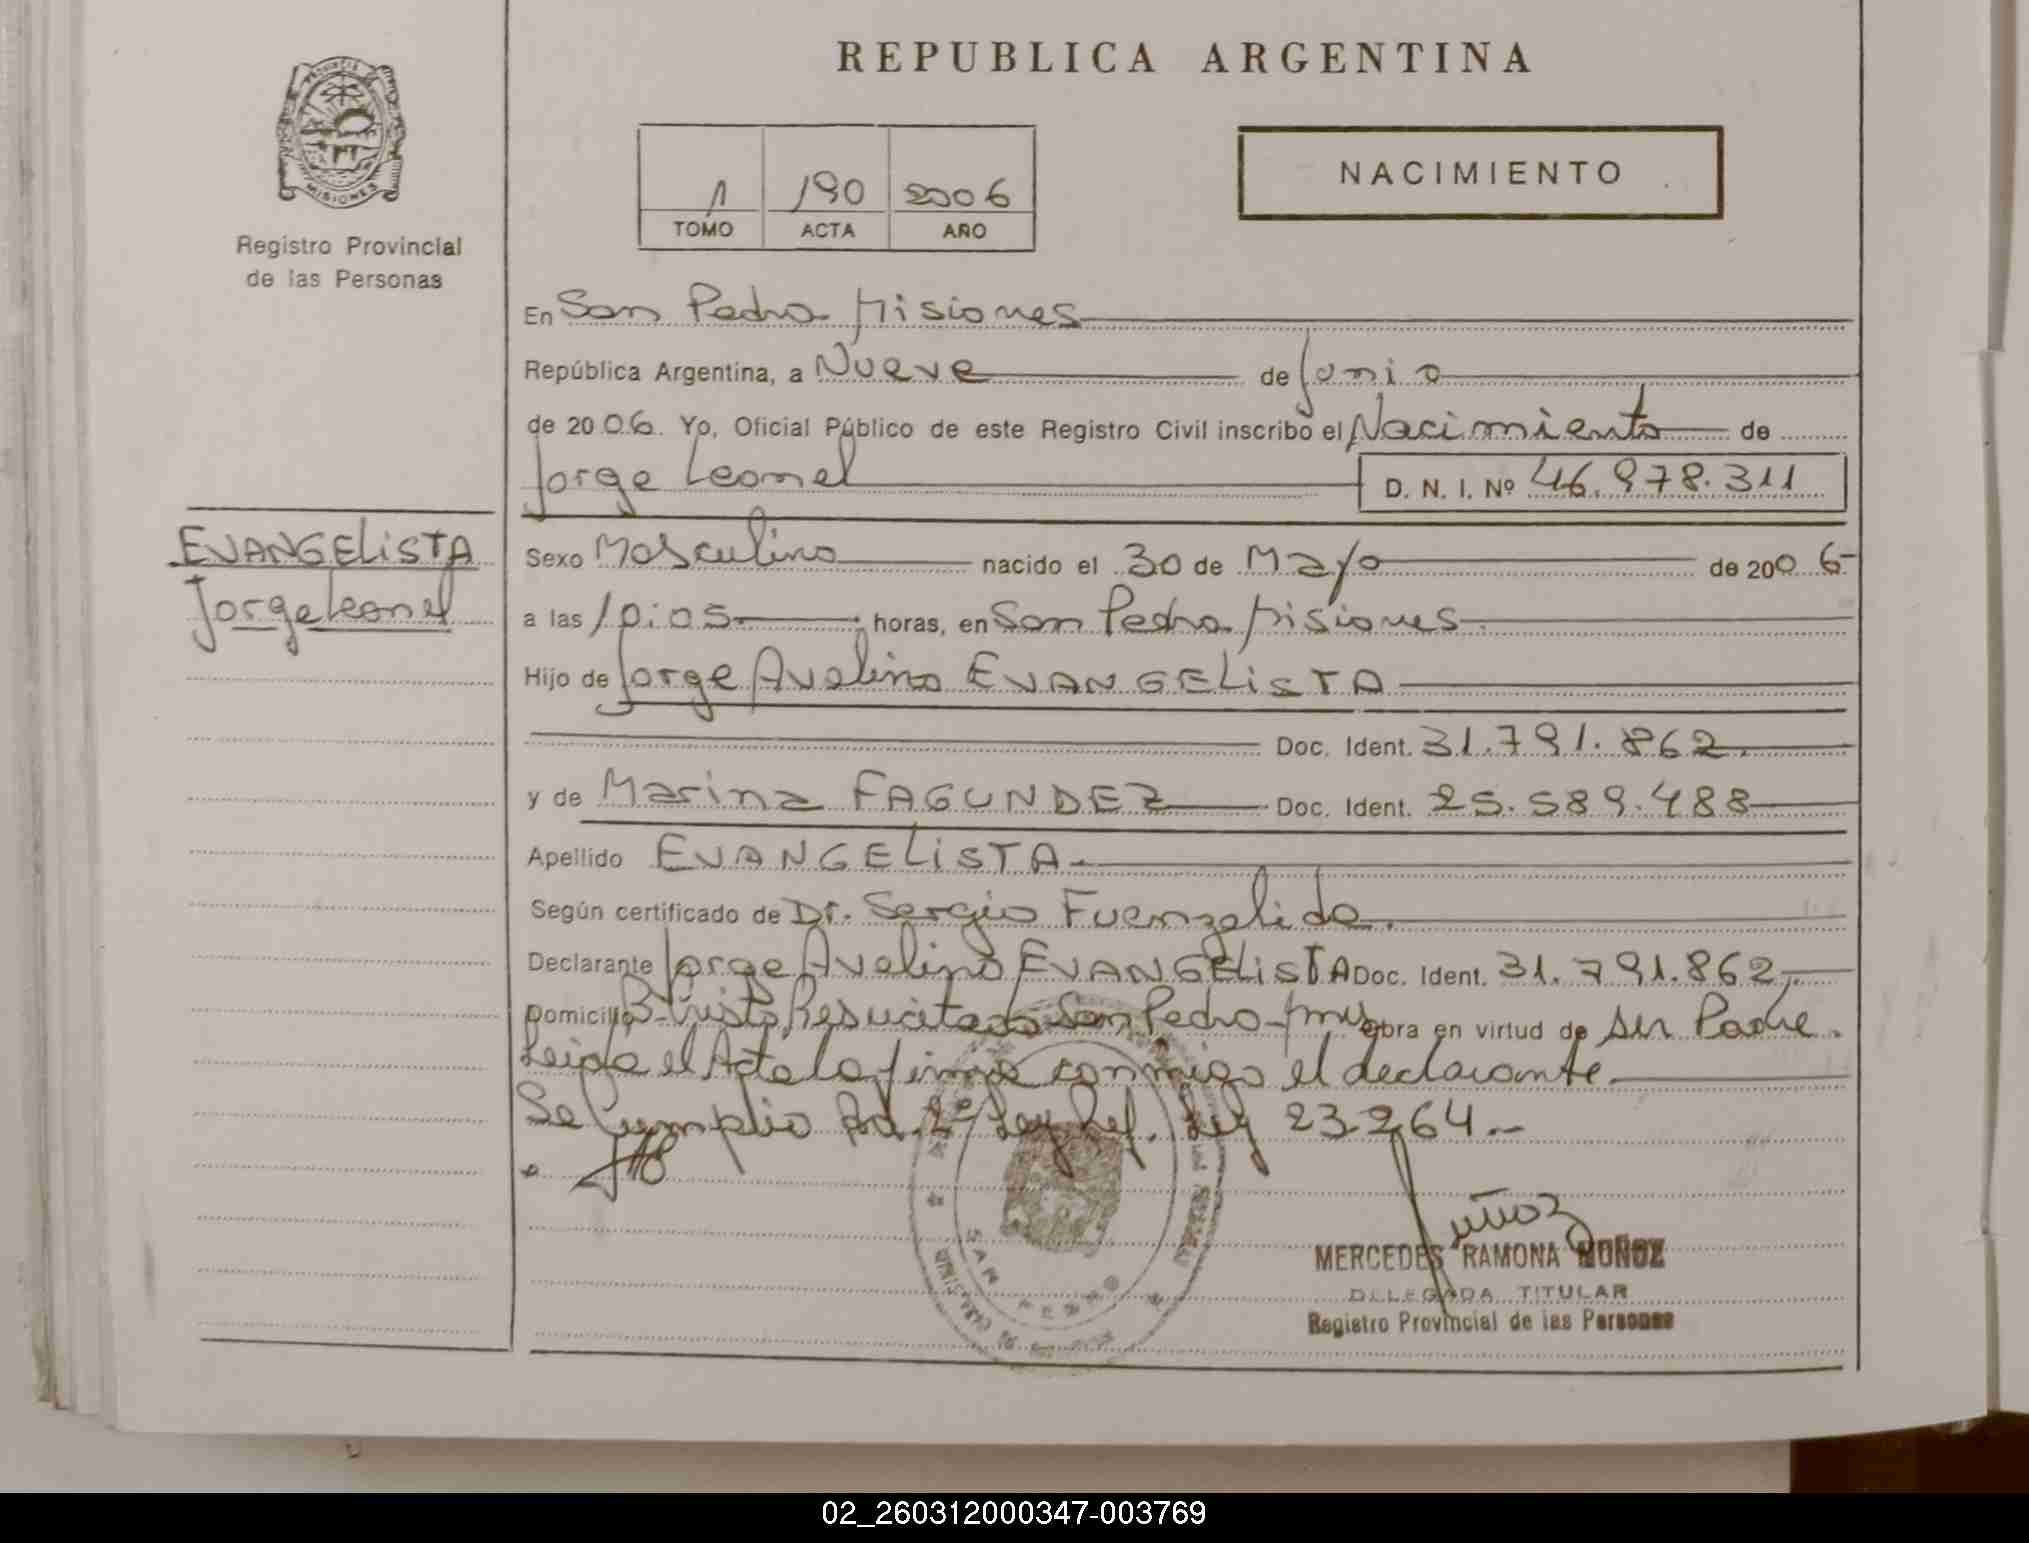 REPUBLICA ARGENTINA
PROVINCIA
MISIONES
Registro Provincial
de las Personas
1 190 2006
TOMO ACTA AÑO
NACIMIENTO
En San Pedro Misiones
República Argentina, a Nueve de Junio
de 2006. Yo, Oficial Público de este Registro Civil inscribo el Nacimiento de
Jorge Leonel D. N. I. Nº 46.978.311
EVANGELISTA
Jorge Leonel
Sexo Masculino nacido el 30 de Mayo de 2006-
a las 10:05 horas, en San Pedro Misiones
Hijo de Jorge Avelino EVANGELISTA
Doc. Ident. 31.791.862.
y de Marina FAGUNDEZ Doc. Ident. 25.589.488
Apellido EVANGELISTA
Según certificado de Dr. Sergio Fuenzalida.
Declarante Jorge Avelino EVANGELISTA Doc. Ident. 31.791.862
Domicilio Bº Cristo Resucitado San Pedro - Mnes obra en virtud de ser Padre.
Leida el Acta la firma conmigo el declarante
Se Cumplio Art. 2º Ley Ref. Ley 23.264.-
SAN PEDRO
Muñoz
MERCEDES RAMONA MUÑOZ
DELEGADA TITULAR
Registro Provincial de las Personas
02_260312000347-003769